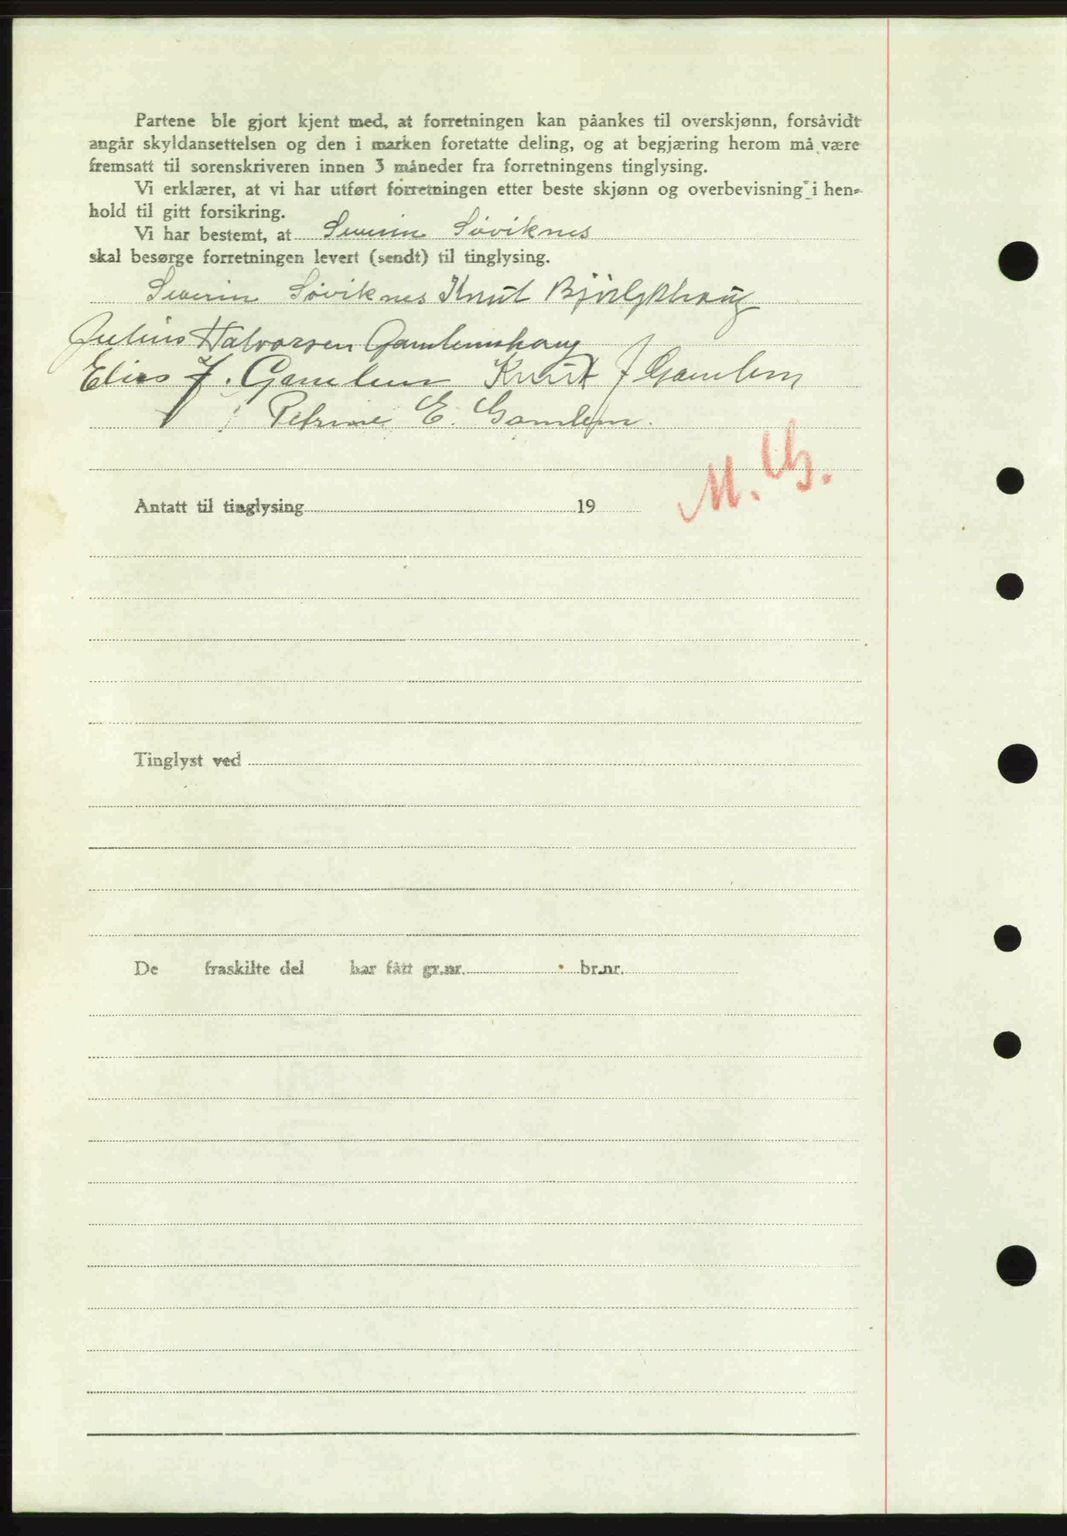 Partene ble gjort kjent med, at forretningen kan påankes til overskjønn, forsåvidt
angår skyldansettelsen og den i marken foretatte deling, og at begjæring herom må være
fremsatt til sorenskriveren innen 3 måneder fra forretningens tinglysing.
Vi erklærer, at vi har utført forretningen etter beste skjønn og overbevisning i hen-
hold til gitt forsikring.
Vi har bestemt, at Severin Søviknes
skal besørge forretningen levert (sendt) til tinglysing.
Severin Søviknes Knut
Julius Halvorsen Gamlemshaug
Elias J. Gamlem Knut J Gamlem
Petrine E. Gamlem.
Antatt til tinglysing 19
Tinglyst ved
De fraskilte del har fått gr.nr. br.nr.